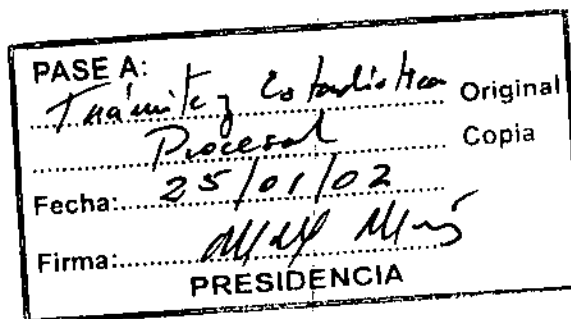 PASE A:
Trámite y Estadística Original
Procesal Copia
Fecha: 25/01/02
Firma:
PRESIDENCIA